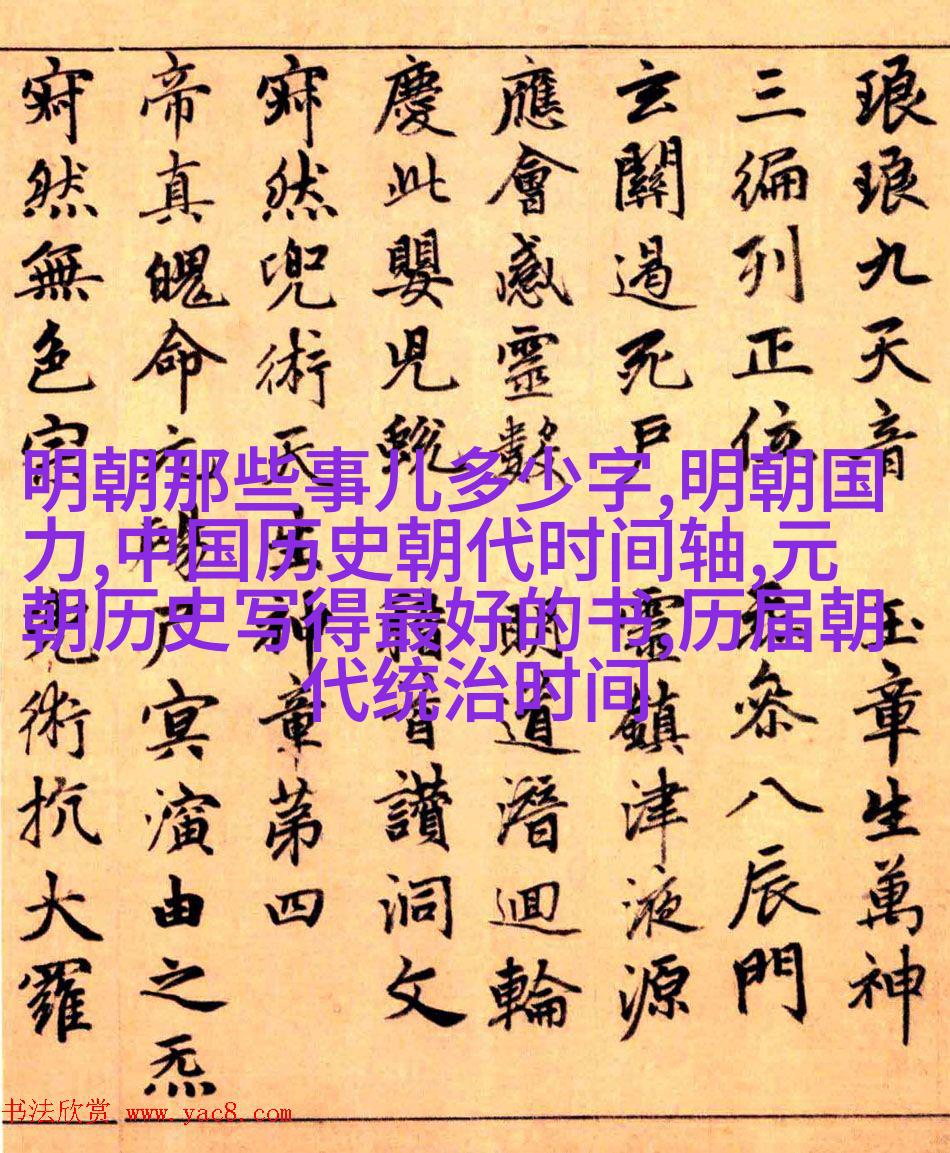 琅琅九天音 玉章生萬神
三編列正位 森八辰門
玄關過死戶 靈鎮津液源
應會感靈數 明道潛迴輪
慶此嬰兒蛻 讚洞文
寂然兜術天 神章第四
帝真魄命元 尸冥演由之炁
寂然無色宗 兜術抗大羅
明朝那些事儿多少字,明朝国
力,中国历史朝代时间轴,元
朝历史写得最好的书,历届朝
代统治时间
书法欣赏 www.yac8.com